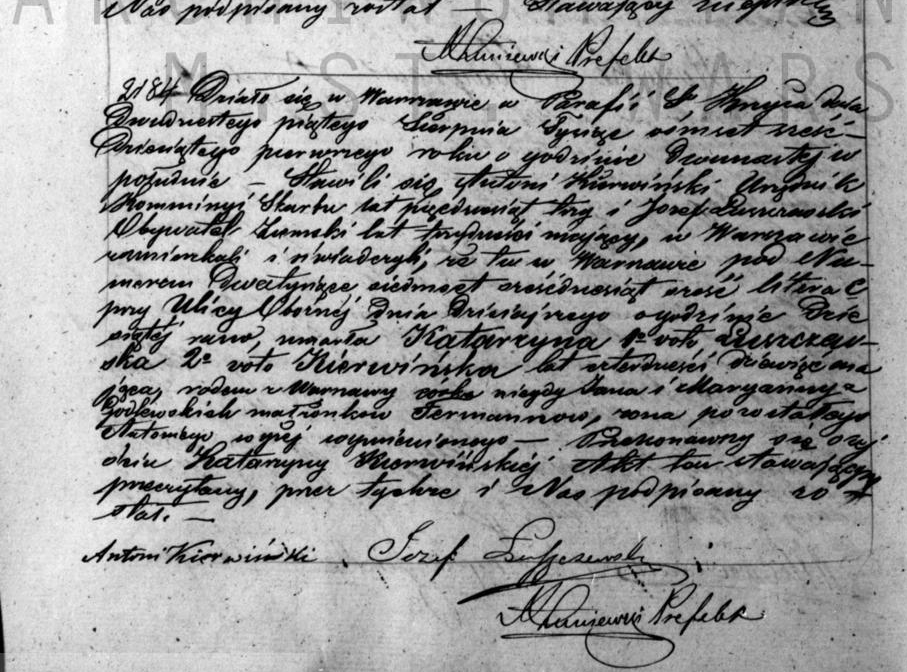 Nas podpisany został — Stawający
Prefekt
2184 Działo się w Warszawie w Parafii Sº Krzyża dnia
Dwudziestego piątego Sierpnia Tysiąc ośmset sześć-
dziesiątego pierwszego roku o godzinie dwunastej w
południe — Stawili się, Antoni Kierwiński Urzędnik
Kommissyi Skarbu lat pięćdziesiąt trzy i Józef Łuszczewski
Obywatel Ziemski lat trzydzieści mający, w Warszawie
zamieszkali i oświadczyli, że tu w Warszawie pod Nu-
merem Dwatysiące siedmset sześćdziesiąt sześć litera C
przy Ulicy Obornéj dnia dzisiejszego o godzinie dzie
siątéj rano, umarła Katarzyna 1º voto Łuszczew-
ska 2º voto Kierwińska lat czterdzieści dziewięć ma
jąca, rodem z Warszawy córka niegdy Jana i Maryanny z
Godlewskich małżonków Fermannow, żona pozostałego
Antoniego wyżéj wymienionego — Przekonawszy się o zej
ściu Katarzyny Kierwińskiéj Akt ten stawającym
przeczytany, przez tychże i Nas podpisany zo
stał. —
Antoni Kierwiński Józef Łuszczewski
Prefekt